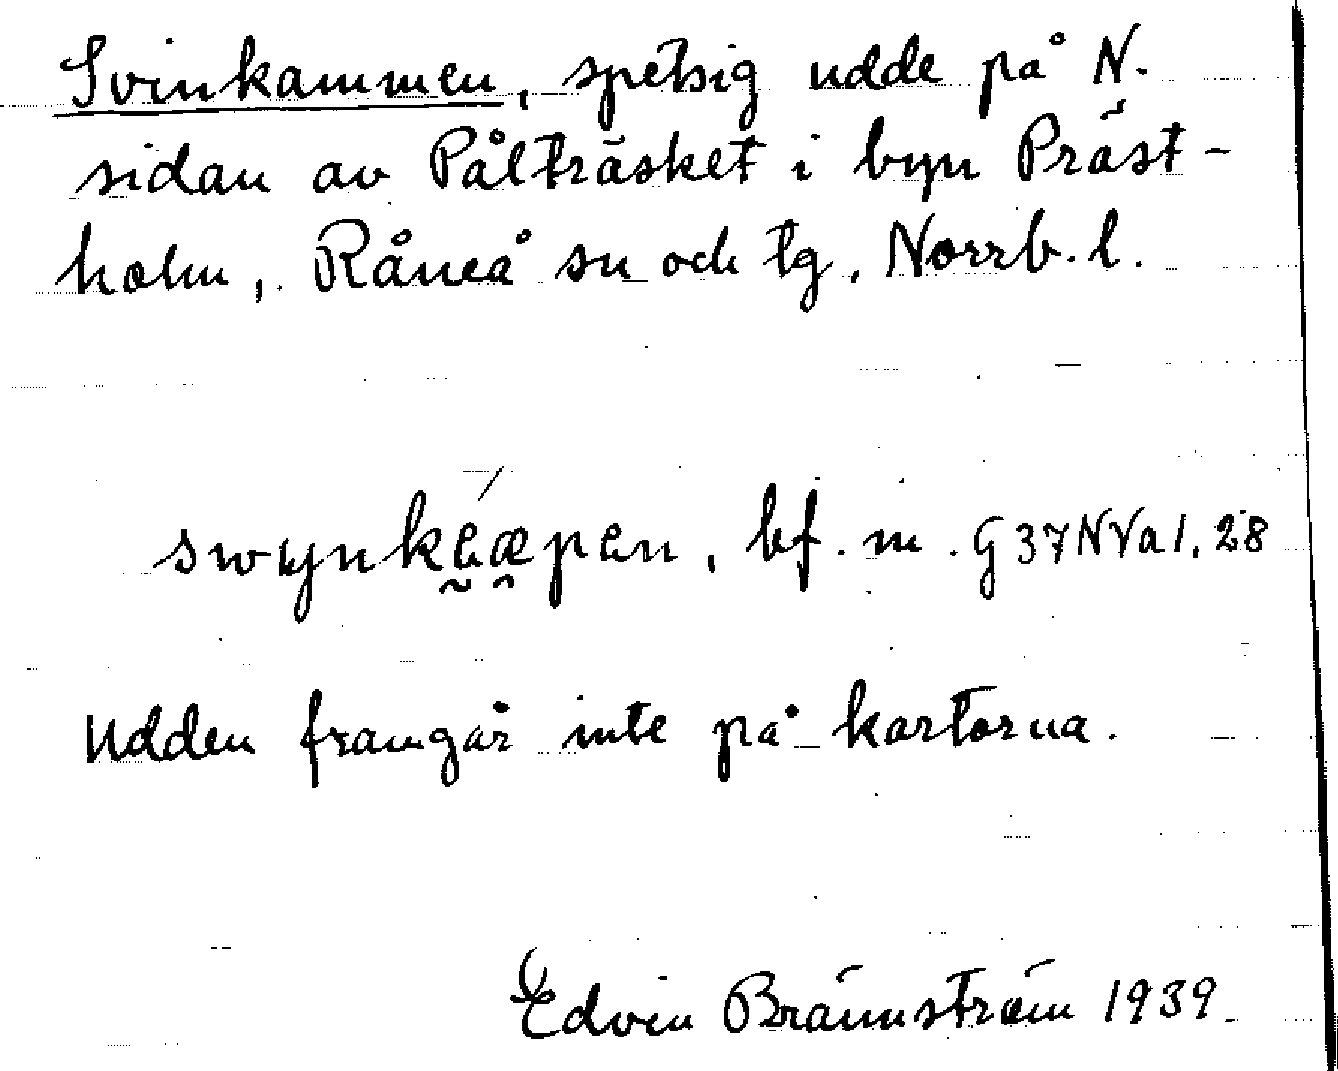 Svinkammen, spetsig udde på N.
sidan av Pålträsket i byn Präst-
holm, Råneå sn och tg, Norrb. l.
bf. m. G 37 N V a 1, 28
Udden framgår inte på kartorna.
Edvin Brännström 1939